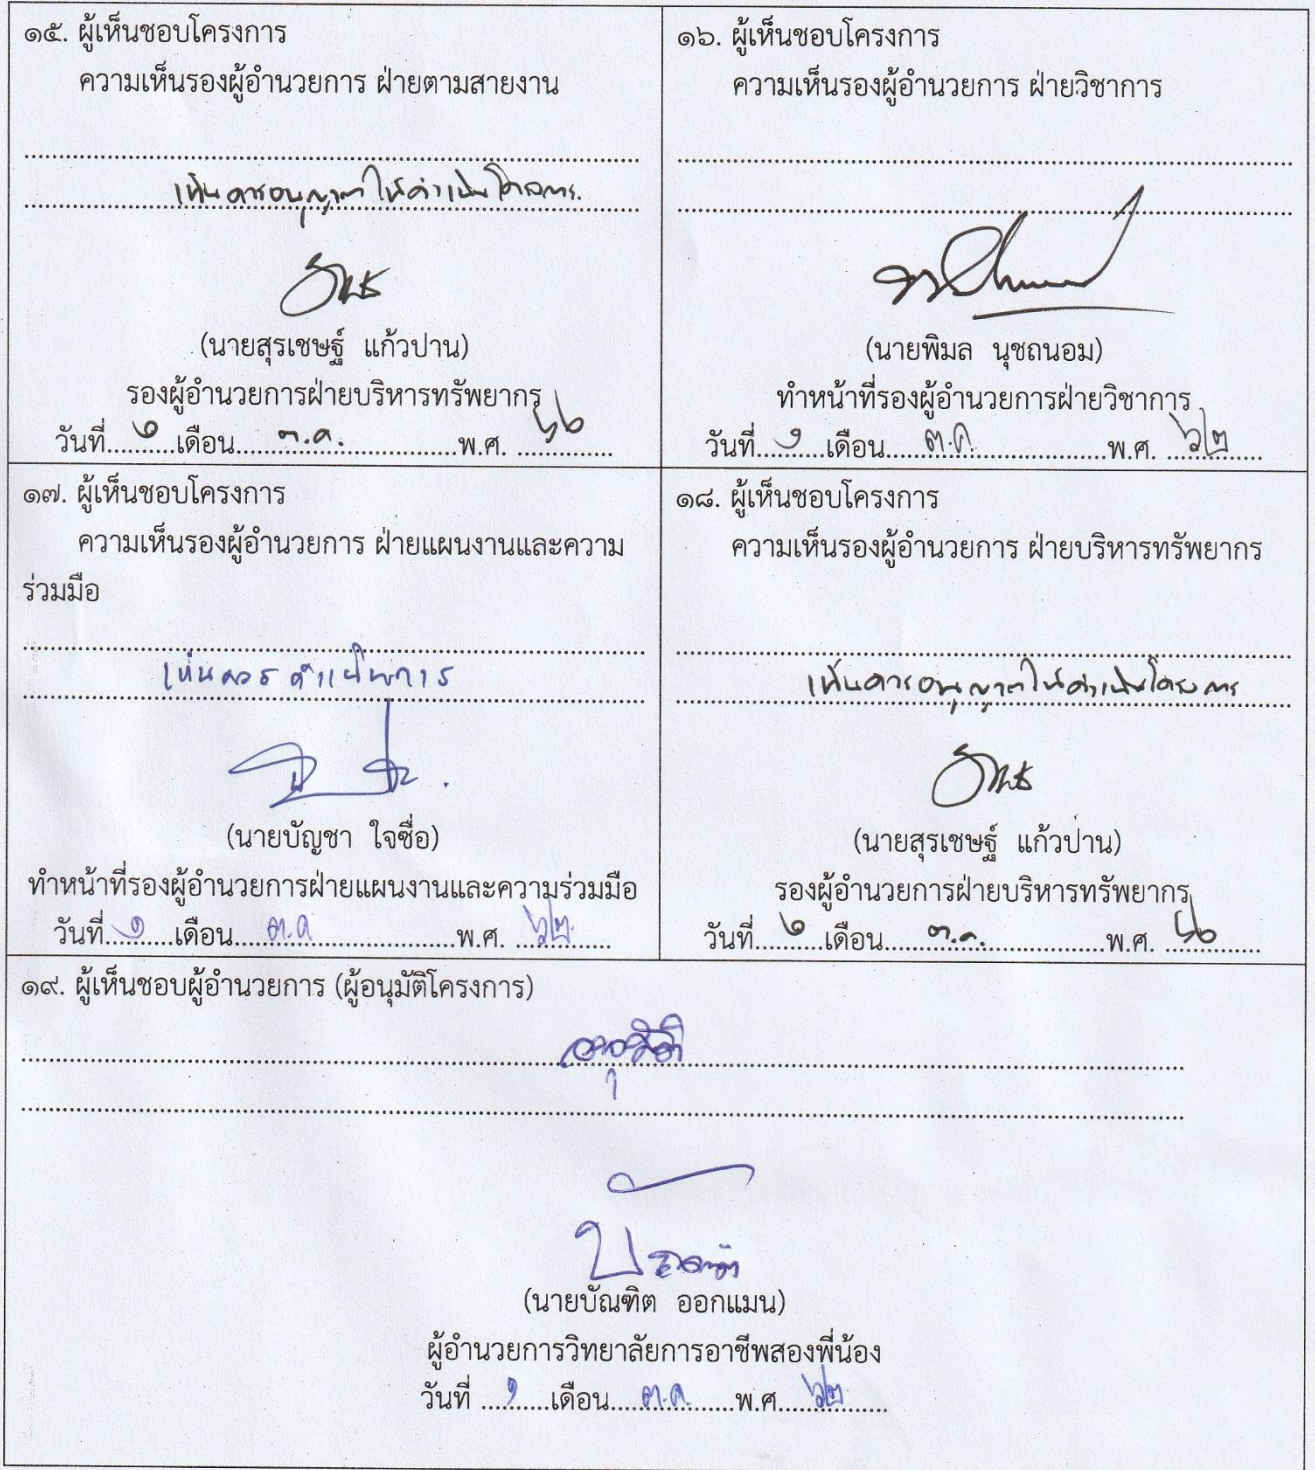 ๑๕. ผู้เห็นชอบโครงการ
ความเห็นรองผู้อำนวยการ ฝ่ายตามสายงาน
เห็นควรอนุญาตให้ดำเนินโครงการ
(นายสุรเชษฐ์ แก้วปาน)
รองผู้อำนวยการฝ่ายบริหารทรัพยากร
วันที่..........เดือน.....ต.ค......พ.ศ. ..........
๑๖. ผู้เห็นชอบโครงการ
ความเห็นรองผู้อำนวยการ ฝ่ายวิชาการ
(นายพิมล นุชถนอม)
ทำหน้าที่รองผู้อำนวยการฝ่ายวิชาการ
วันที่....๑....เดือน.....ต.ค......พ.ศ. ...๖๒...
๑๗. ผู้เห็นชอบโครงการ
ความเห็นรองผู้อำนวยการ ฝ่ายแผนงานและความ
ร่วมมือ
เห็นควรดำเนินการ
(นายบัญชา ใจซื่อ)
ทำหน้าที่รองผู้อำนวยการฝ่ายแผนงานและความร่วมมือ
วันที่....๑....เดือน.....ต.ค......พ.ศ. ...๖๒...
๑๘. ผู้เห็นชอบโครงการ
ความเห็นรองผู้อำนวยการ ฝ่ายบริหารทรัพยากร
เห็นควรอนุญาตให้ดำเนินโครงการ
(นายสุรเชษฐ์ แก้วปาน)
รองผู้อำนวยการฝ่ายบริหารทรัพยากร
วันที่..........เดือน.....ต.ค......พ.ศ. ..........
๑๙. ผู้เห็นชอบผู้อำนวยการ (ผู้อนุมัติโครงการ)
อนุมัติ
(นายบัณฑิต ออกแมน)
ผู้อำนวยการวิทยาลัยการอาชีพสองพี่น้อง
วันที่ ....๑....เดือน.....ต.ค......พ.ศ....๖๒...